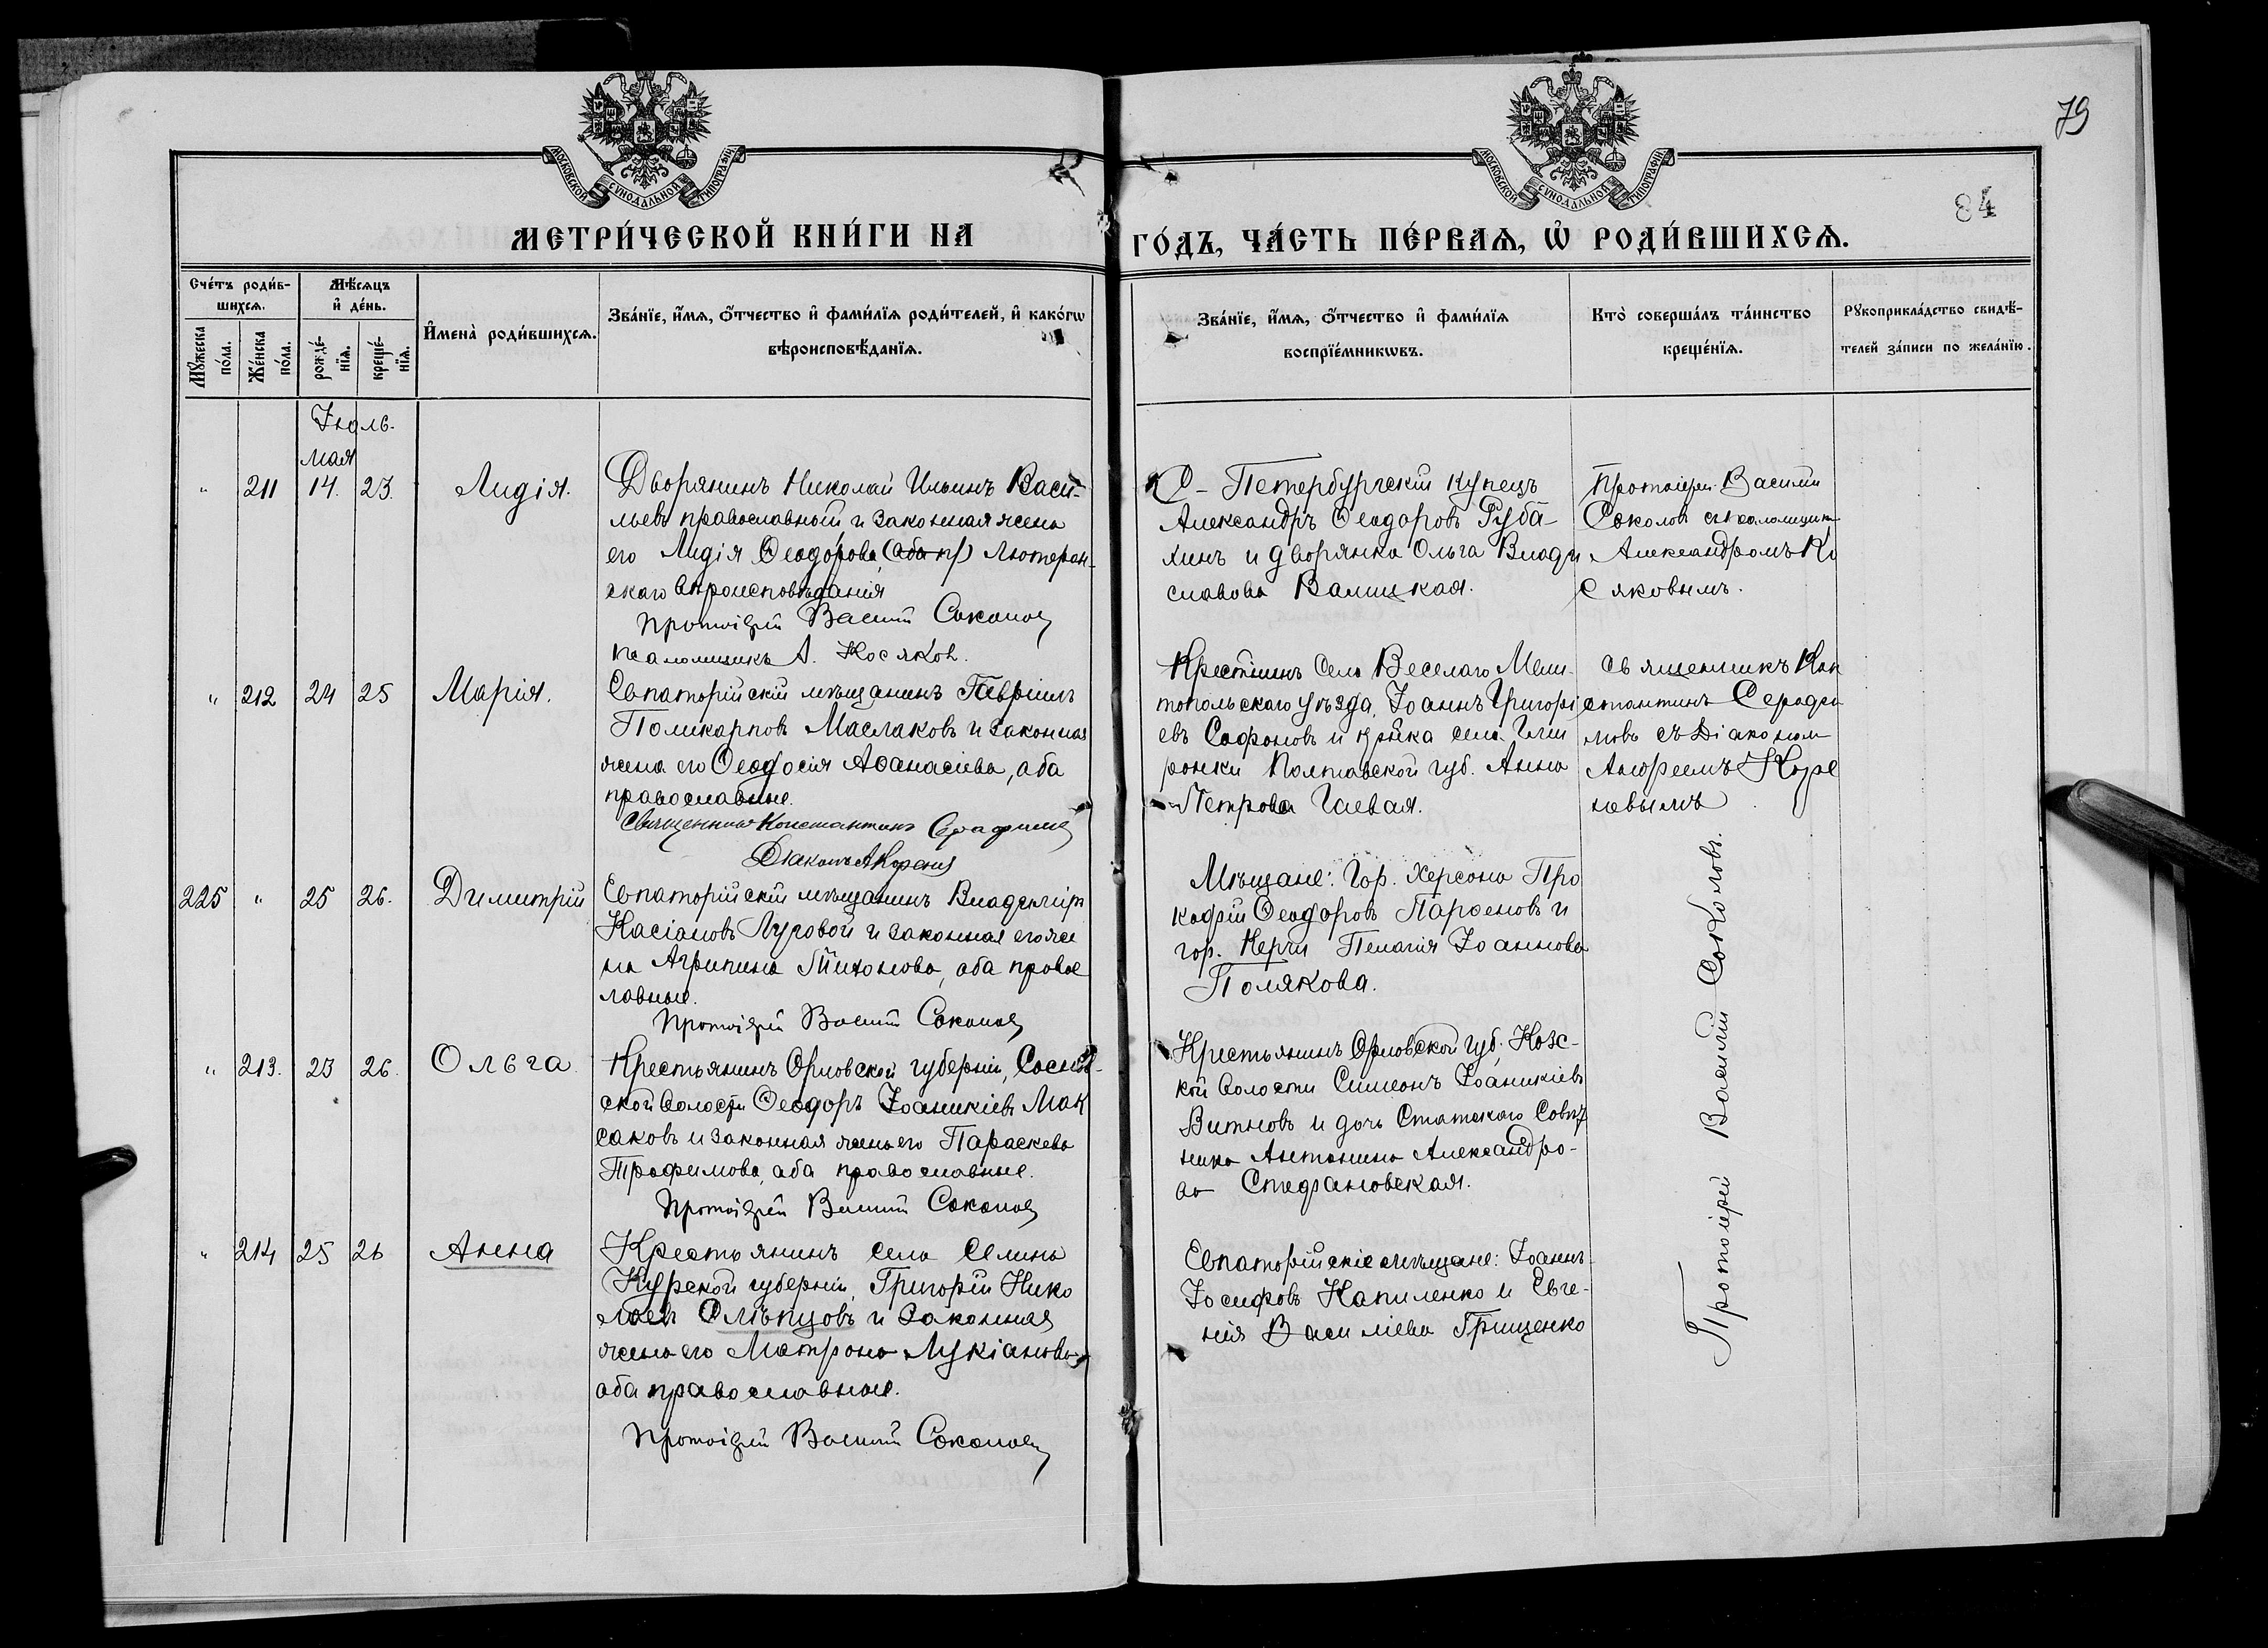 79
84
МОСКОВСКОЙ СѴНОДАЛЬНОЙ ТИПОГРАФІИ
МОСКОВСКОЙ СѴНОДАЛЬНОЙ ТИПОГРАФІИ
МЕТРИ́ЧЕСКОЙ КНИ́ГИ НА ГО́ДЪ, ЧА́СТЬ ПЕ́РВАѦ, Ѽ РОДИ́ВШИХСѦ.
Сче́тъ роди́в-
шихсѧ.
Мѣ́сяцъ
и҆ де́нь.
Мꙋ́жеска
по́ла.
Же́нска
по́ла.
рожде́-
нїѧ.
креще́-
нїѧ.
И҆мена̀ роди́вшихсѧ.
Зва́нїе, и҆́мѧ, ѻ҆́тчество и҆ фами́лїѧ роди́телей, и҆ како́гѡ
вѣроисповѣ́данїѧ.
Зва́нїе, и҆́мѧ, ѻ҆́тчество и҆ фами́лїѧ
воспрїе́мникѡвъ.
Кто̀ соверша́лъ та́инство
креще́нїѧ.
Рꙋкоприкла́дство свидѣ́-
телей за́писи по жела́нїю.
Іюль.
мая
" 211 14. 23. Лидія.
Дворянинъ Николай Ильинъ Васи-
льевъ православный и законная жена
его Лидія Ѳеодорова, (оба пр) Лютеран-
скаго вѣроисповѣданія
Протоіерей Василій Соколовъ
Псаломщикъ А. Косяковъ.
С-Петербургскій купецъ
Александръ Ѳеодоровъ Руба-
хинъ и дворянка Ольга Влади
славова Валицкая.
Протоіерей Василій
Соколовъ съ псаломщик
Александромъ Ко
сяковымъ.
" 212 24 25 Марія.
Евпаторійскій мѣщанинъ Гавріилъ
Поликарповъ Маслаковъ и законная
жена его Ѳеодосія Аѳанасіева, оба
православные.
Священникъ Константинъ Серафимовъ
Діаконъ А Кореневъ
Крестьнинъ села Веселаго Мели-
топольскаго уѣзда, Іоаннъ Григорі
евъ Сафоновъ и
Полтавской губ. Анна
Петрова Гаевая.
Священникъ Кон
стантинъ Серафи
мовъ съ Діакономъ
Андреемъ Коре
невымъ
225 " 25 26. Димитрій
Евпаторійскій мѣщанинъ Владиміръ
Касіановъ Луговой и законная его же
на Агрипина Тихонова, оба правос
лавные.
Протоіерей Василій Соколовъ
Мѣщане: Гор. Херсона Про
кофій Ѳеодоровъ Парѳеновъ и
гор. Керчи Пелагія Іоаннова
Полякова.
" 213. 23 26. Ольга
Крестьянинъ Орловской губерніи, Сосков-
ской волости Ѳеодоръ Іоаникіевъ Мак
саковъ и законная жена его Параскева
Трофимова, оба православные.
Протоіерей Василій Соколовъ
Крестьянинъ Орловской губ.
кой волости Симеонъ Іоаникіевъ
и дочь Статскаго Совѣт
ника Антонина Александро-
ва Стефановская.
" 214 25 26 Анна
Крестьянинъ села Селина
Курской губерніи, Григорій Нико
лаевъ Слѣпцовъ и законная
жена его Матрона Лукіанова
оба православные.
Протоіерей Василій Соколовъ
Евпаторійскіе мѣщане: Іоаннъ
Іосифовъ Капиленко и Евге-
нія Василіева Грищенко
Протоіерей Василій Соколовъ.